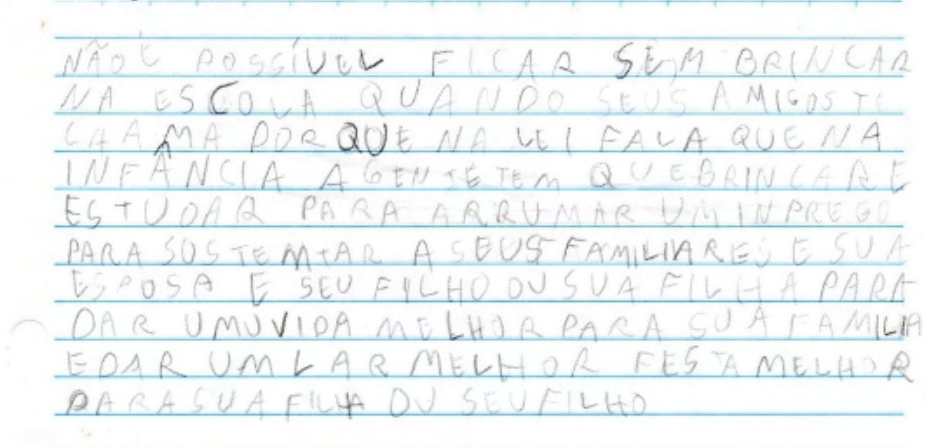 NÃO É POSSÍVEL FICAR SEM BRINCAR
NA ESCOLA QUANDO SEUS AMIGOS TE
CHAMA PORQUE NA LEI FALA QUE NA
INFÂNCIA A GENTE TEM QUE BRINCAR E
ESTUDAR PARA ARRUMAR UM INPREGO
PARA SUSTEMTAR A SEUS FAMILIARES E SUA
ESPOSA E SEU FILHO OU SUA FILHA PARA
DAR UMU VIDA MELHOR PARA SUA FAMILIA
E DAR UM LAR MELHOR FESTA MELHOR
PARA SUA FILHA OU SEU FILHO